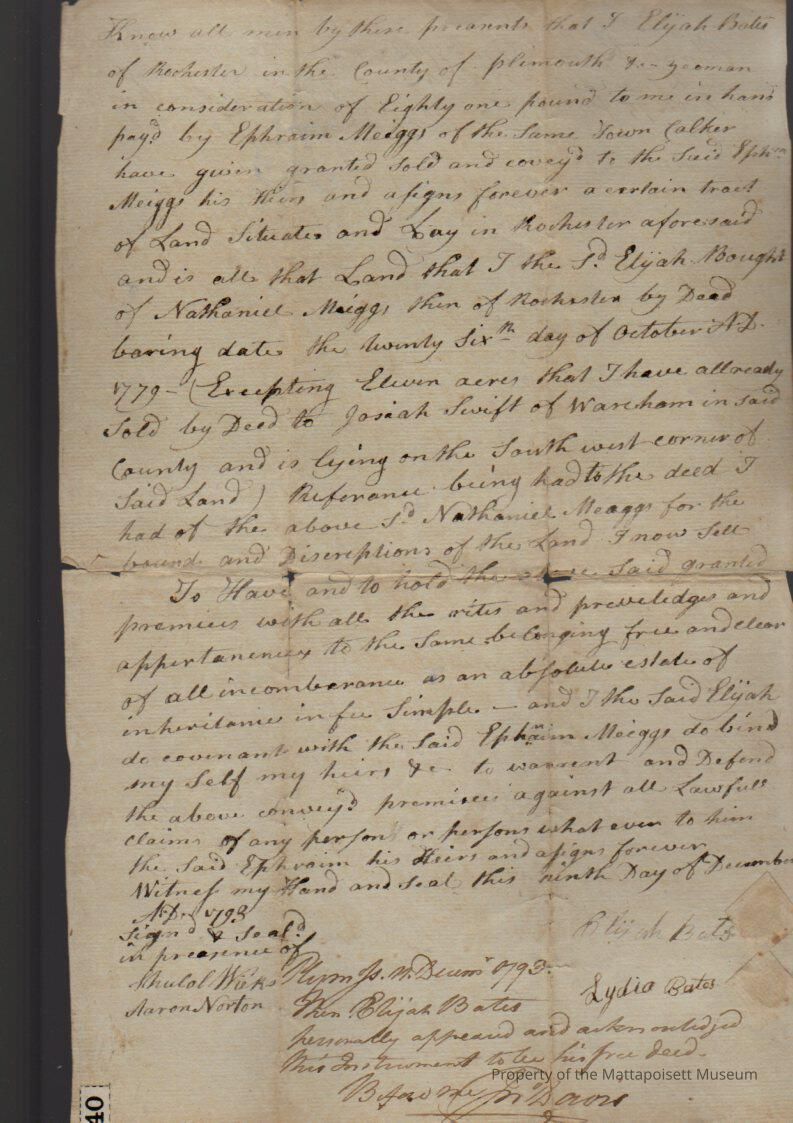 Know all men by these presents that I Elijah Bates
of Rochester in the County of plimouth &c - yeoman
in consideration of Eighty one pound to me in hand
payd by Ephraim Meiggs of the Same Town Calker
have given granted Sold and coveyd to the Said Ephm
Meiggs his Heirs and asigns forever a certain tract
of Land Situate and Lay in Rochester aforesaid
and is all that Land that I the Sd Elijah Bought
of Nathaniel Meiggs then of Rochester by Deed
baring date the twenty Sixth day of October A.D.
1779 - (Excepting Eleven acres that I have allready
Sold by Deed to Josiah Swift of Wareham in Said
County and is lying on the South west corner of
Said Land) Referance being had to the deed I
had of the above Sd Nathaniel Meaggs for the
bound and Discreptions of the Land I now Sell
To Have and to hold the above Said granted
premices with all the rites and preveledges and
appertanences to the Same belonging free and clear
of all incomberance as an absolute estate of
inheritance in fee Simple - and I the Said Elijah
do covenant with the Said Ephraim Meiggs do bind
my Self my heirs &c to warrent and Defend
the above conveyd premices against all Lawfull
claims of any person or persons what ever to him
the Said Ephraim his Heirs and asigns forever
Witness my Hand and Seal this ninth Day of December
A.D. 1793
Signd & Seald
in presence of
Elijah Bates
Lydia Bates
Aaron Norton
Plym Js. Decemr 1793.
Then Elijah Bates
personally appeared and acknowledged
this Instrument to be his free deed.
Before me Davis
Property of the Mattapoisett Museum
40